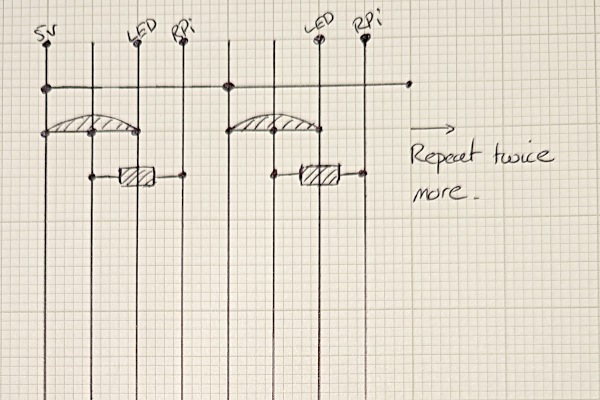 5V LED RPi LED RPi
Repeat twice
more.